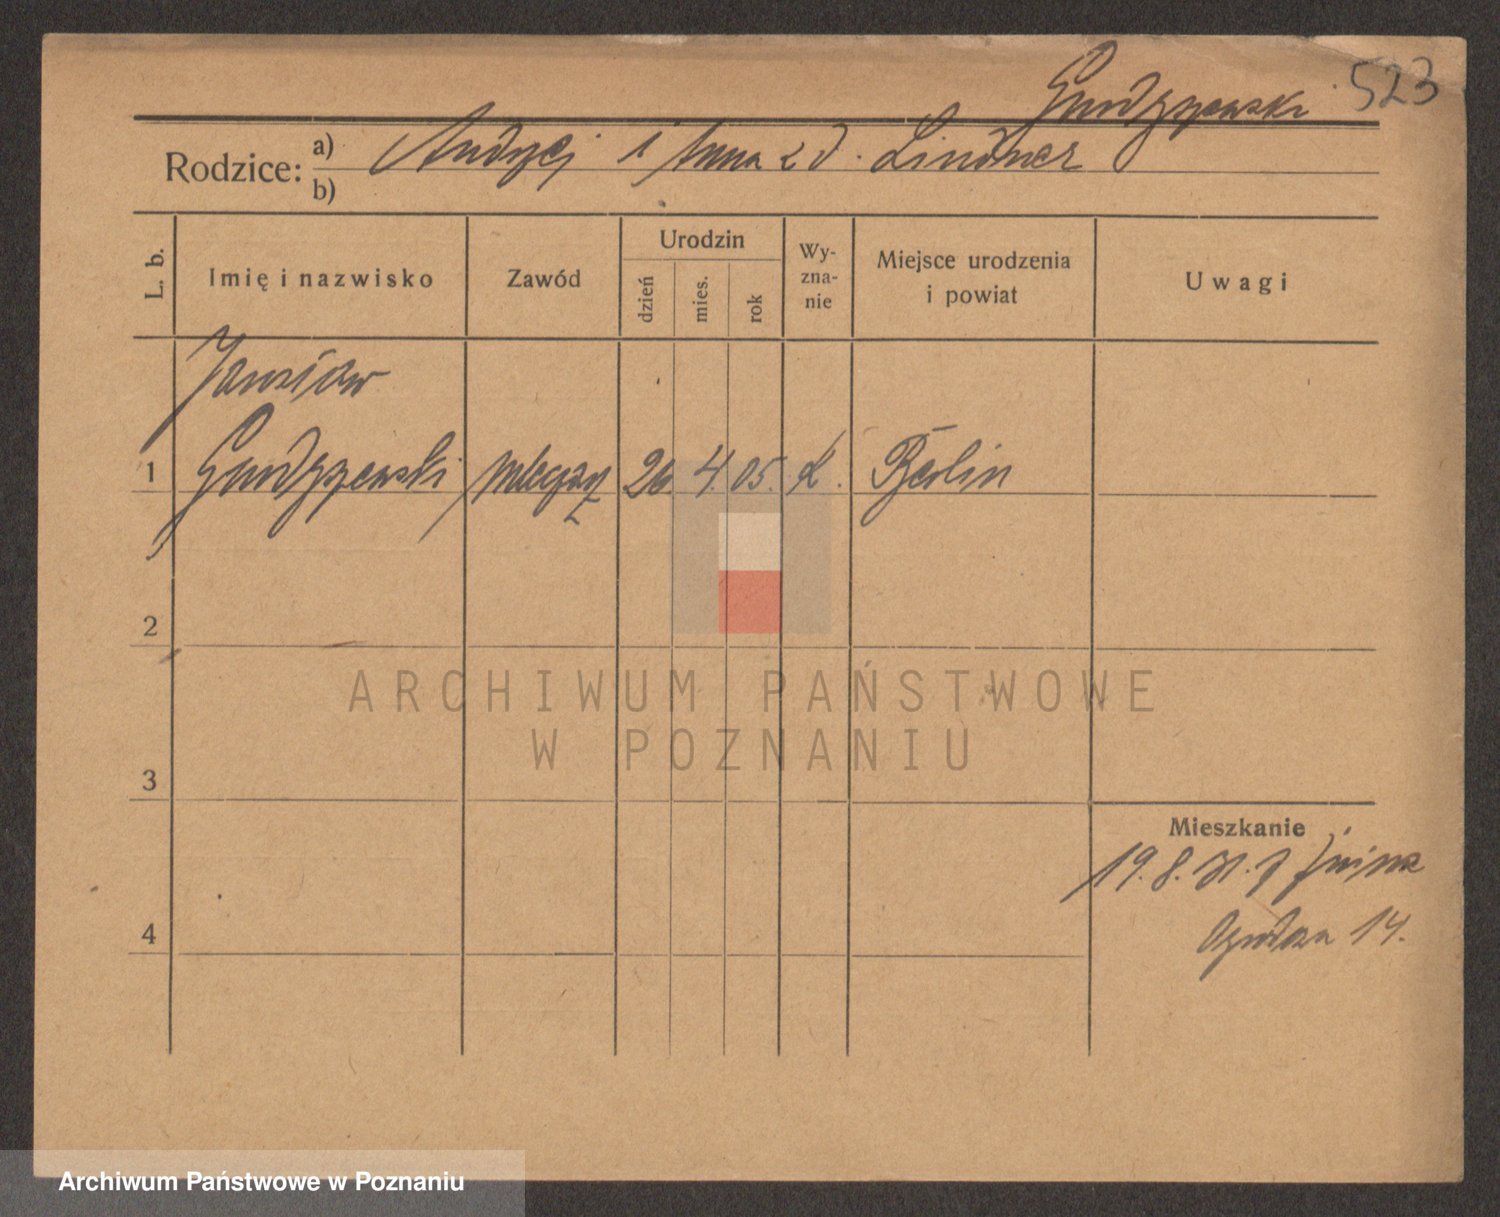 523
Rodzice: a) Andrzej i Anna z d. Lindner
b)
L. b.
Imię i nazwisko
Zawód
Urodzin
dzień
mies.
rok
Wy-
zna-
nie
Miejsce urodzenia
i powiat
Uwagi
1
26. 4. 05. K. Berlin
2
3
4
Mieszkanie
19. 8. 31. z
14.
ARCHIWUM PAŃSTWOWE
W POZNANIU
Archiwum Państwowe w Poznaniu